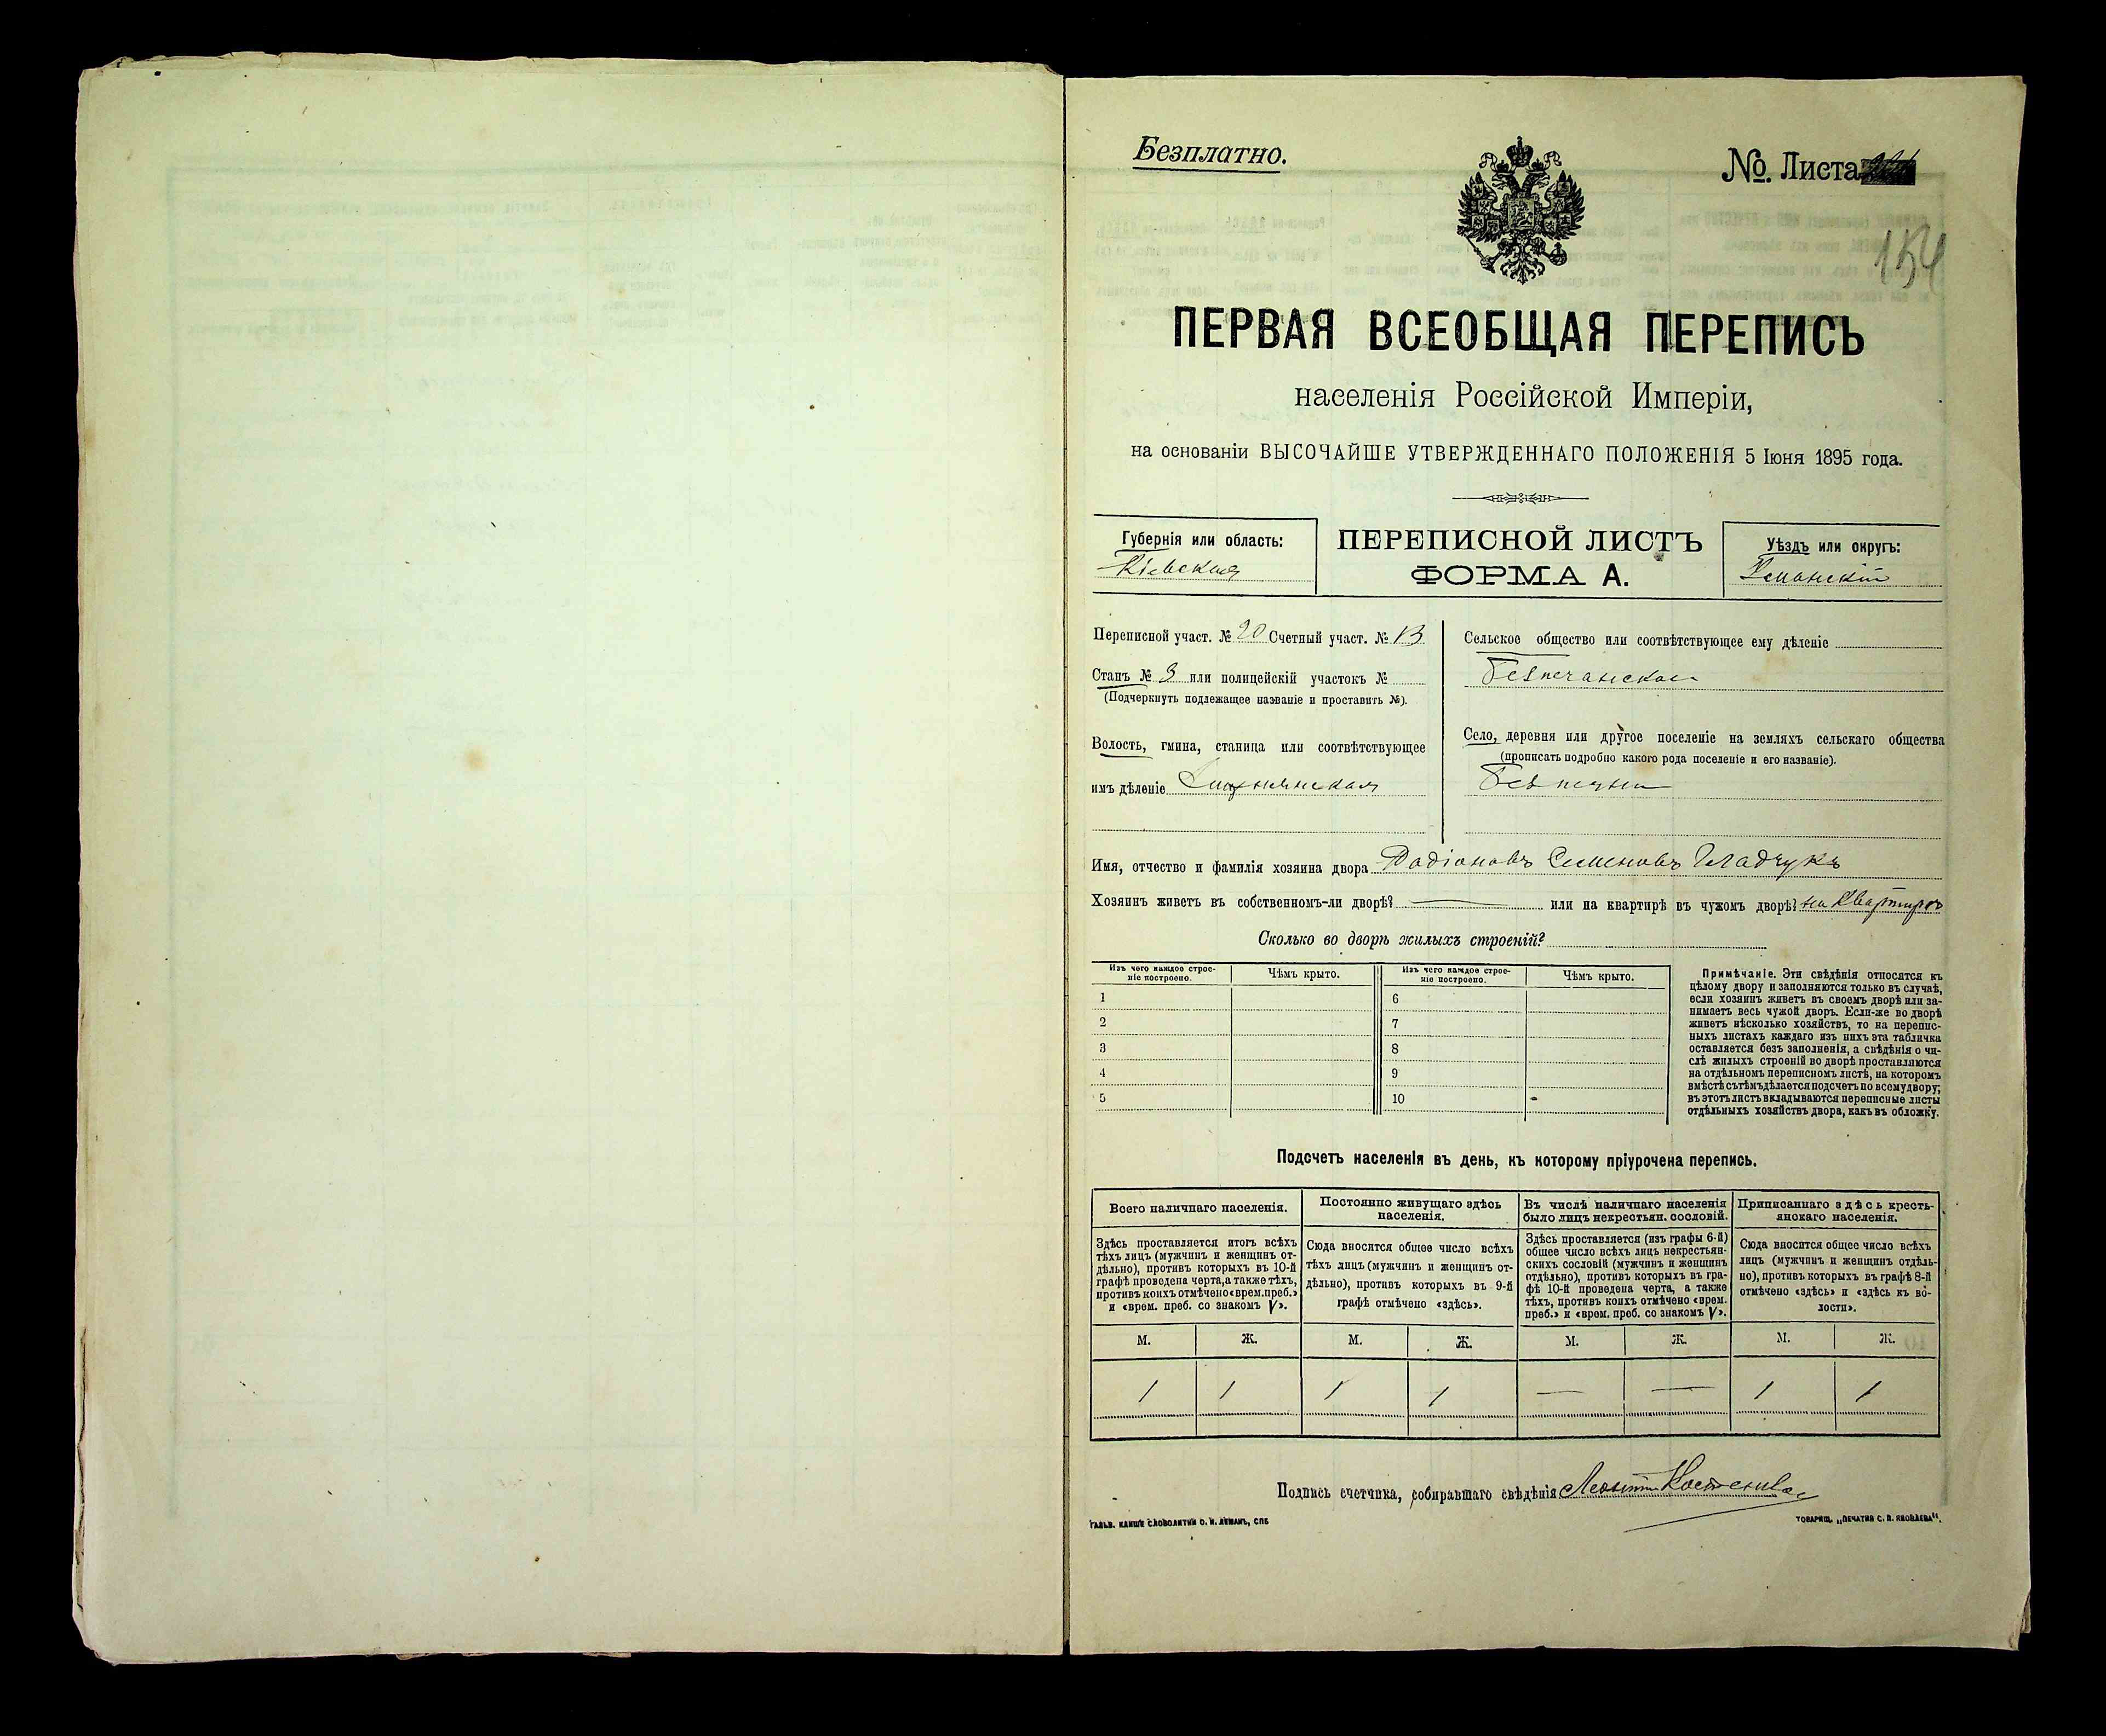 Безплатно.
№. Листа
154
ПЕРВАЯ ВСЕОБЩАЯ ПЕРЕПИСЬ
населенія Россійской Имперіи,
на основаніи ВЫСОЧАЙШЕ УТВЕРЖДЕННАГО ПОЛОЖЕНІЯ 5 Іюня 1895 года.
Губернія или область:
Кіевская
ПЕРЕПИСНОЙ ЛИСТЪ
ФОРМА А.
Уѣздъ или округъ:
Уманскій
Переписной участ. № 20 Счетный участ. № 13
Станъ № 3 или полицейскій участокъ №
(Подчеркнуть подлежащее названіе и проставить №).
Волость, гмина, станица или соотвѣтствующее
имъ дѣленіе
Сельское общество или соотвѣтствующее ему дѣленіе
Безпечанское
Село, деревня или другое поселеніе на земляхъ сельскаго общества
(прописать подробно какого рода поселеніе и его названіе).
Имя, отчество и фамилія хозяина двора Родіоновъ Семеновъ Гладчукъ
Хозяинъ живетъ въ собственномъ-ли дворѣ? — или на квартирѣ въ чужомъ дворѣ? на квартирѣ
Сколько во дворѣ жилыхъ строеній?
Изъ чего каждое строе-
ніе построено.
Чѣмъ крыто.
Изъ чего каждое строе-
ніе построено.
Чѣмъ крыто.
1
6
2
7
3
8
4
9
5
10
Примѣчаніе. Эти свѣдѣнія относятся къ
цѣлому двору и заполняются только въ случаѣ,
если хозяинъ живетъ въ своемъ дворѣ или за-
нимаетъ весь чужой дворъ. Если-же во дворѣ
живетъ нѣсколько хозяйствъ, то на перепис-
ныхъ листахъ каждаго изъ нихъ эта табличка
оставляется безъ заполненія, а свѣдѣнія о чи-
слѣ жилыхъ строеній во дворѣ проставляются
на отдѣльномъ переписномъ листѣ, на которомъ
вмѣстѣ съ тѣмъ дѣлается подсчетъ по всему двору;
въ этотъ листъ вкладываются переписные листы
отдѣльныхъ хозяйствъ двора, какъ въ обложку.
Подсчетъ населенія въ день, къ которому пріурочена перепись.
Всего наличнаго населенія.
Здѣсь проставляется итогъ всѣхъ
тѣхъ лицъ (мужчинъ и женщинъ от-
дѣльно), противъ которыхъ въ 10-й
графѣ проведена черта, а также тѣхъ,
противъ коихъ отмѣчено «врем. преб.»
и «врем. преб. со знакомъ V».
Постоянно живущаго здѣсь
населенія.
Сюда вносится общее число всѣхъ
тѣхъ лицъ (мужчинъ и женщинъ от-
дѣльно), противъ которыхъ въ 9-й
графѣ отмѣчено «здѣсь».
Въ числѣ наличнаго населенія
было лицъ некрестьян. сословій.
Здѣсь проставляется (изъ графы 6-й)
общее число всѣхъ лицъ некрестьян-
скихъ сословій (мужчинъ и женщинъ
отдѣльно), противъ которыхъ въ гра-
фѣ 10-й проведена черта, а также
тѣхъ, противъ коихъ отмѣчено «врем.
преб.» и «врем. преб. со знакомъ V».
Приписаннаго здѣсь кресть-
янскаго населенія.
Сюда вносится общее число всѣхъ
лицъ (мужчинъ и женщинъ отдѣль-
но), противъ которыхъ въ графѣ 8-й
отмѣчено «здѣсь» и «здѣсь къ во-
лости».
М. Ж. М. Ж. М. Ж. М. Ж.
1 1 1 1 — — 1 1
Подпись счетчика, собиравшаго свѣдѣнія
ГАЛЬВ. КЛИШЕ СЛОВОЛИТНИ О. И. ЛЕМАНЪ, СПБ
ТОВАРИЩ. „ПЕЧАТНЯ С. П. ЯКОВЛЕВА“.